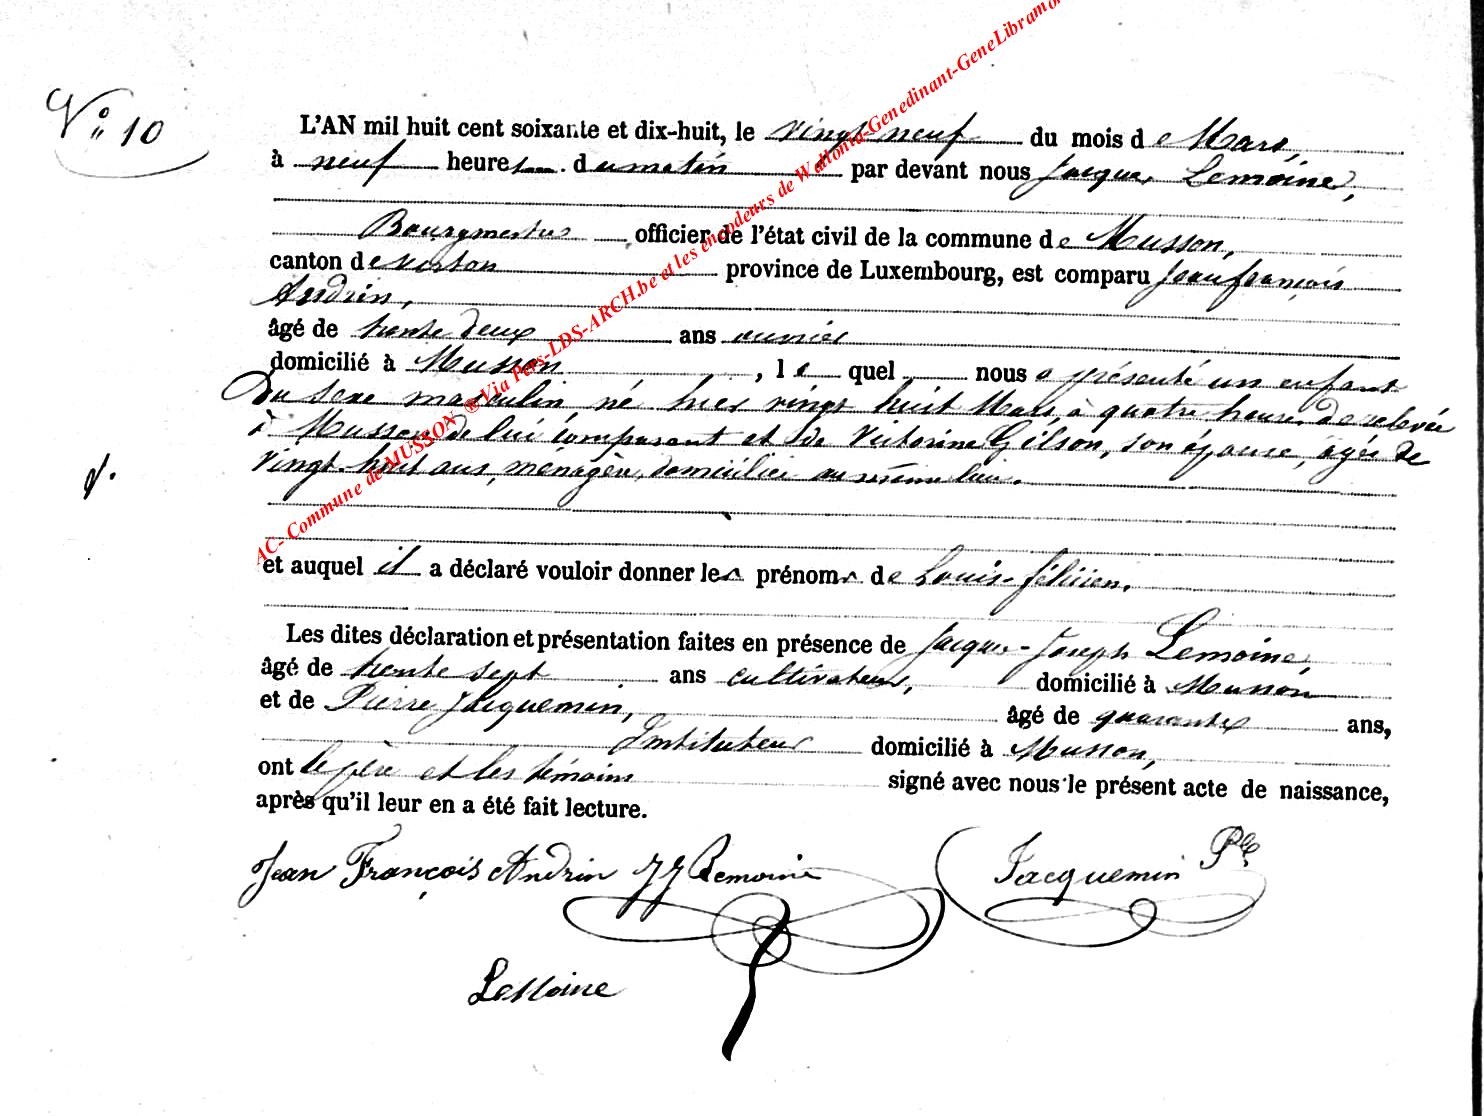 N° 10
L'AN mil huit cent soixante et dix-huit, le vingt-neuf du mois de Mars,
à neuf heures du matin par devant nous Jacques Lemoine,
Bourgmestre officier de l'état civil de la commune de Musson,
canton de Virton province de Luxembourg, est comparu Jean françois
Andrin,
âgé de trente deux ans ouvrier
domicilié à Musson, lequel nous a présenté un enfant
du sexe masculin né hier vingt huit Mars à quatre heures de relevée
à Musson de lui comparant et de Victorine Gilson, son épouse, âgée de
vingt huit ans, ménagère, domiciliée au même lieu.
et auquel il a déclaré vouloir donner les prénoms de Louis-félicien.
Les dites déclaration et présentation faites en présence de Jacques-Joseph Lemoine,
âgé de trente sept ans cultivateur, domicilié à Musson
et de Pierre Jacquemin, âgé de quarante ans,
Instituteur domicilié à Musson,
ont le père et les témoins signé avec nous le présent acte de naissance,
après qu'il leur en a été fait lecture.
Jean François Andrin JJ Lemoine Jacquemin Pre
Lemoine
AC- Commune de MUSSON ® Via Pers-LDS-ARCH.be et les encodeurs de Wallonia-Genedinant-GeneLibramon